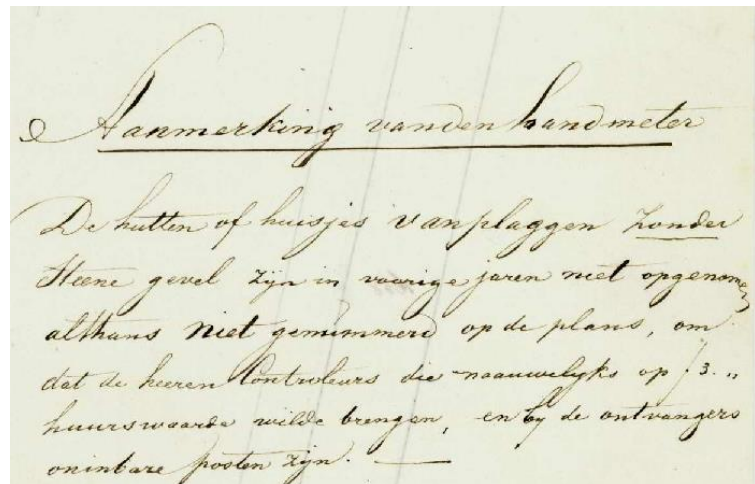 Aanmerking van den Landmeter
De hutten of huisjes van plaggen zonder
Steene gevel zijn in voorige jaren niet opgenomen
althans niet genummerd op de plans, om
dat de heeren Controleurs die naauwelijks op f 3 . „
huurswaarde wilde brengen, en bij de ontvangers
oninbare posten zijn. —